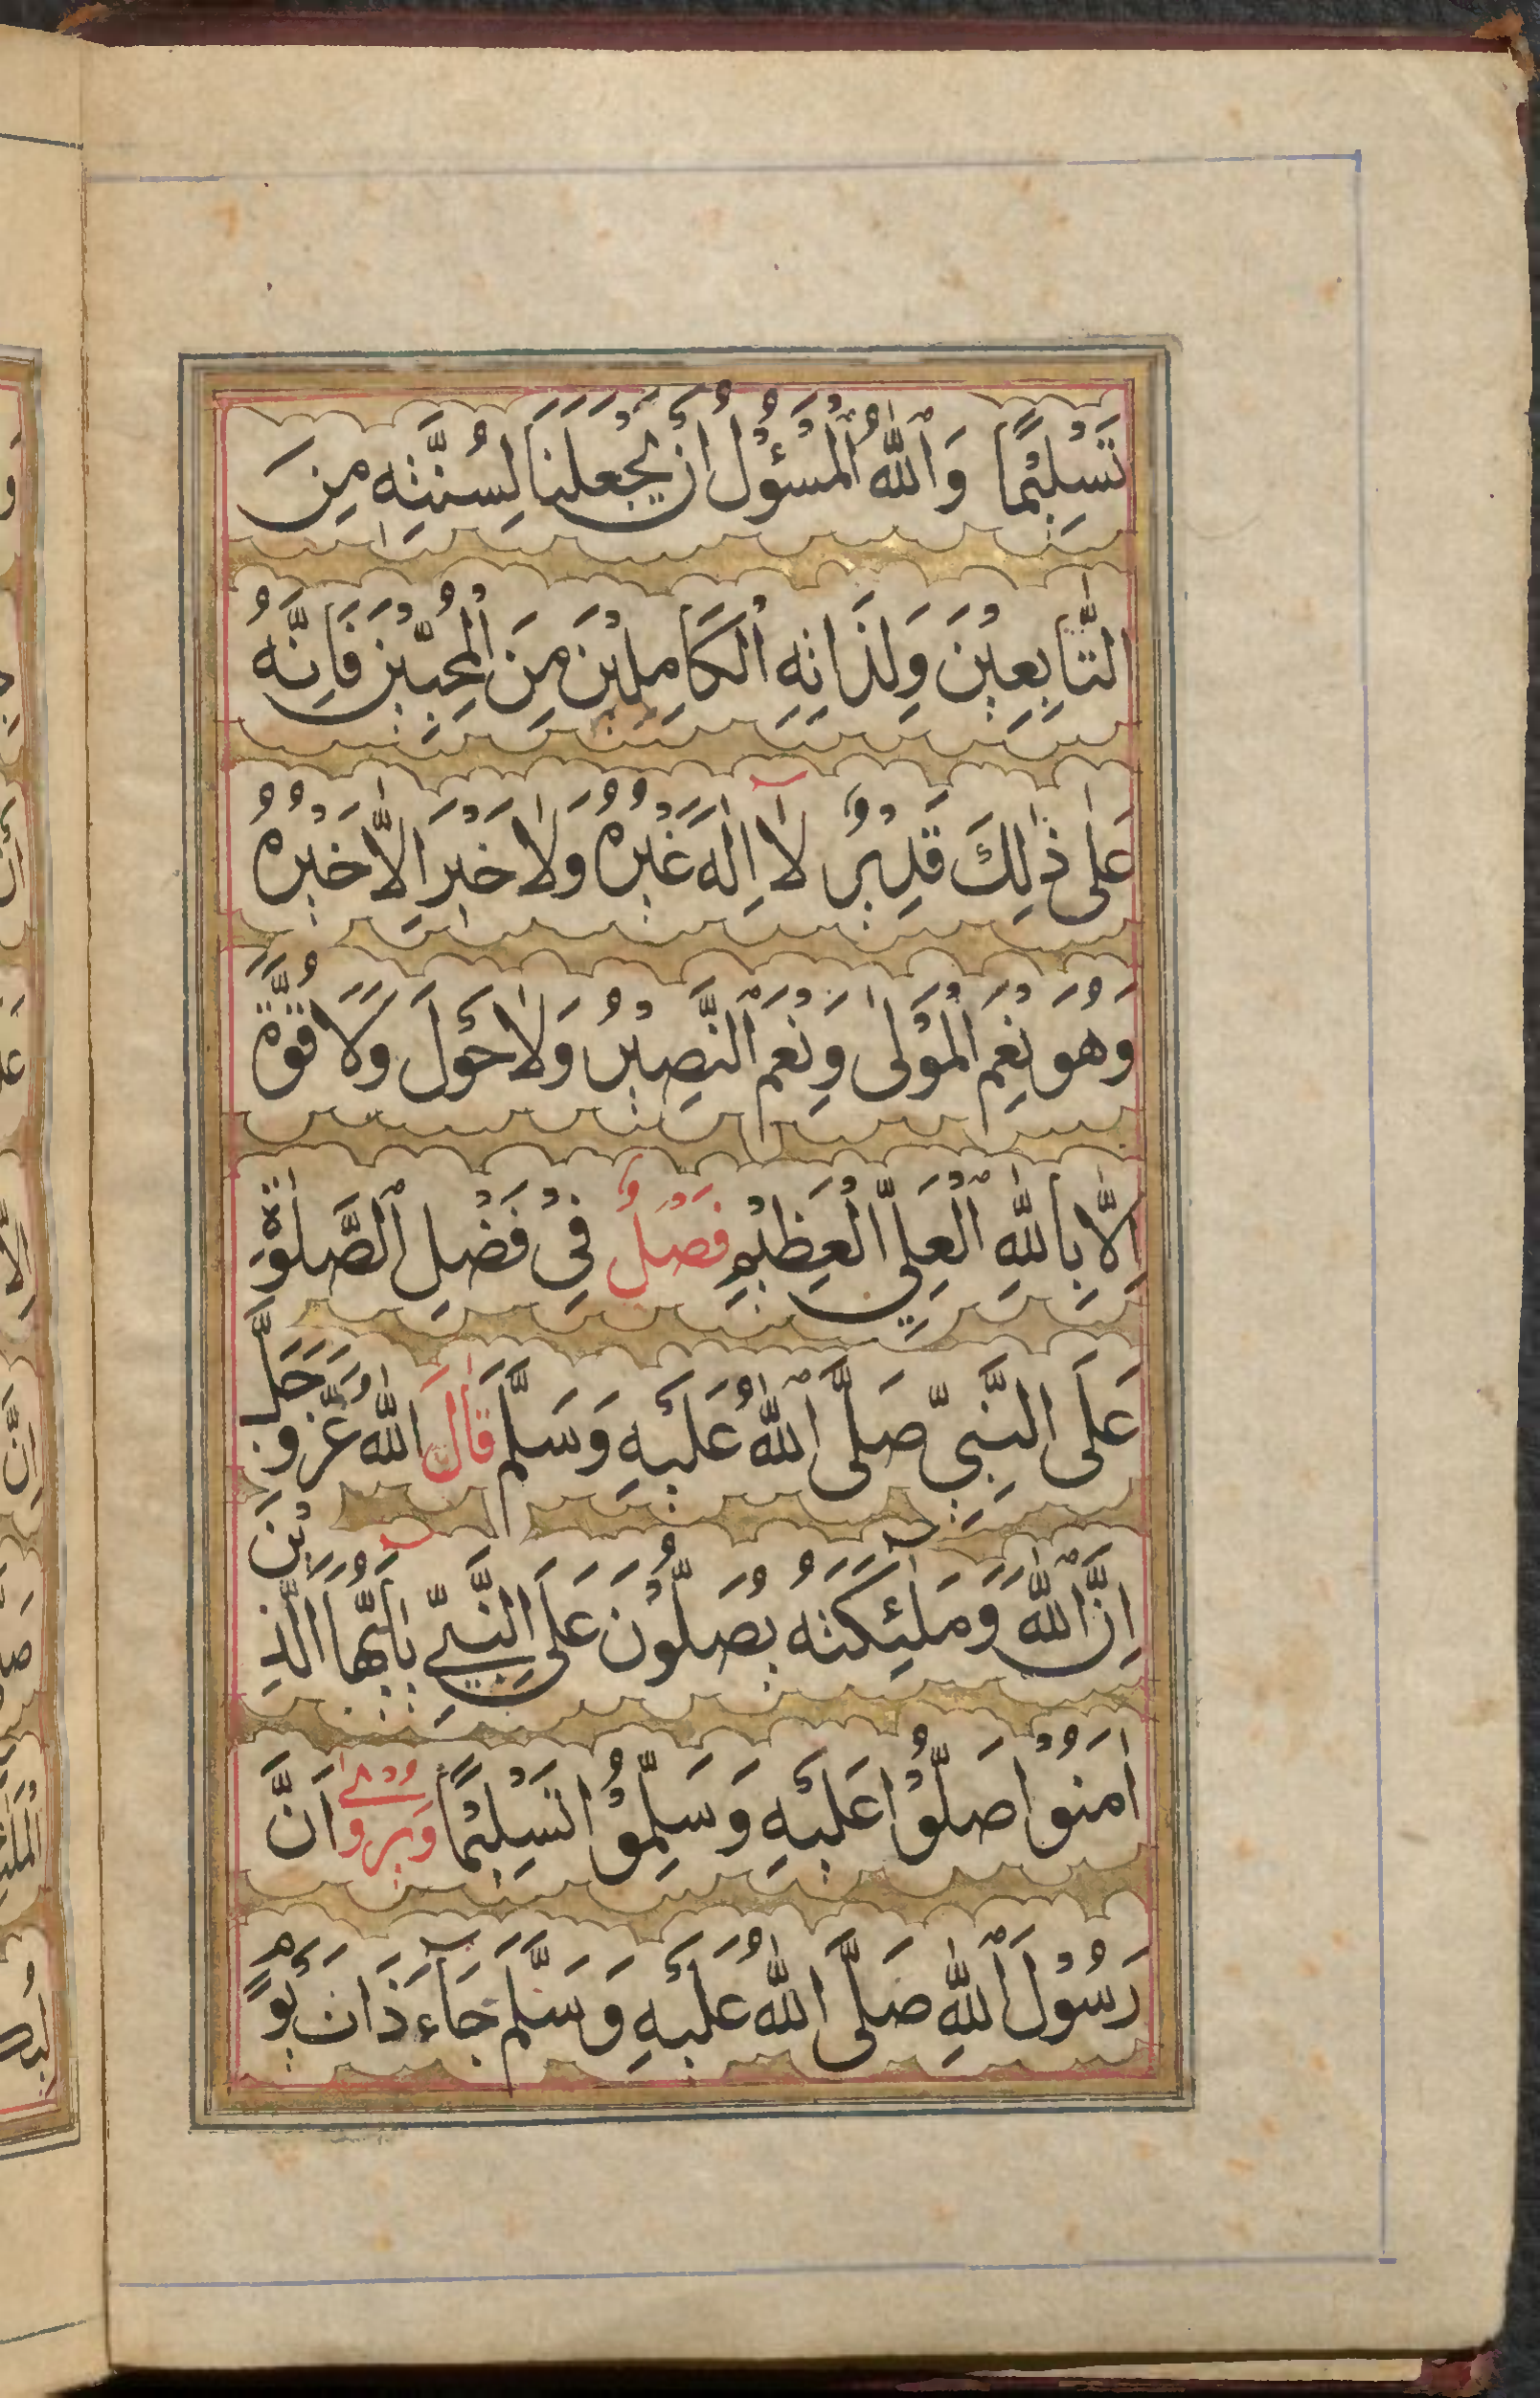 تَسْلِيْمًا وَٱللّٰهُ ٱلْمَسْؤُلُ أَنْ يَجْعَلَنَا لِسُنَّتِهٖ مِنَ
التَّابِعِيْنَ وَلِذَاتِهِ الْكَامِلِيْنَ مِنَ الْمُحِبِّيْنَ فَاِنَّهُ
عَلٰى ذٰلِكَ قَدِيْرٌ لَآ اِلٰهَ غَيْرُهُ وَلَا خَيْرَ اِلَّا خَيْرُهُ
وَهُوَ نِعْمَ الْمَوْلٰى وَنِعْمَ النَّصِيْرُ وَلَا حَوْلَ وَلَا قُوَّةَ
اِلَّا بِاللّٰهِ الْعَلِيِّ الْعَظِيْمِ فَصْلٌ فِيْ فَضْلِ الصَّلٰوةِ
عَلَى النَّبِيِّ صَلَّى اللّٰهُ عَلَيْهِ وَسَلَّمَ قَالَ اللّٰهُ عَزَّ وَجَلَّ
اِنَّ اللّٰهَ وَمَلٰٓئِكَتَهُ يُصَلُّوْنَ عَلَى النَّبِيِّ يَآ اَيُّهَا الَّذِيْنَ
اٰمَنُوْا صَلُّوْا عَلَيْهِ وَسَلِّمُوْا تَسْلِيْمًا وَيُرْوٰى اَنَّ
رَسُوْلَ اللّٰهِ صَلَّى اللّٰهُ عَلَيْهِ وَسَلَّمَ جَآءَ ذَاتَ يَوْمٍ